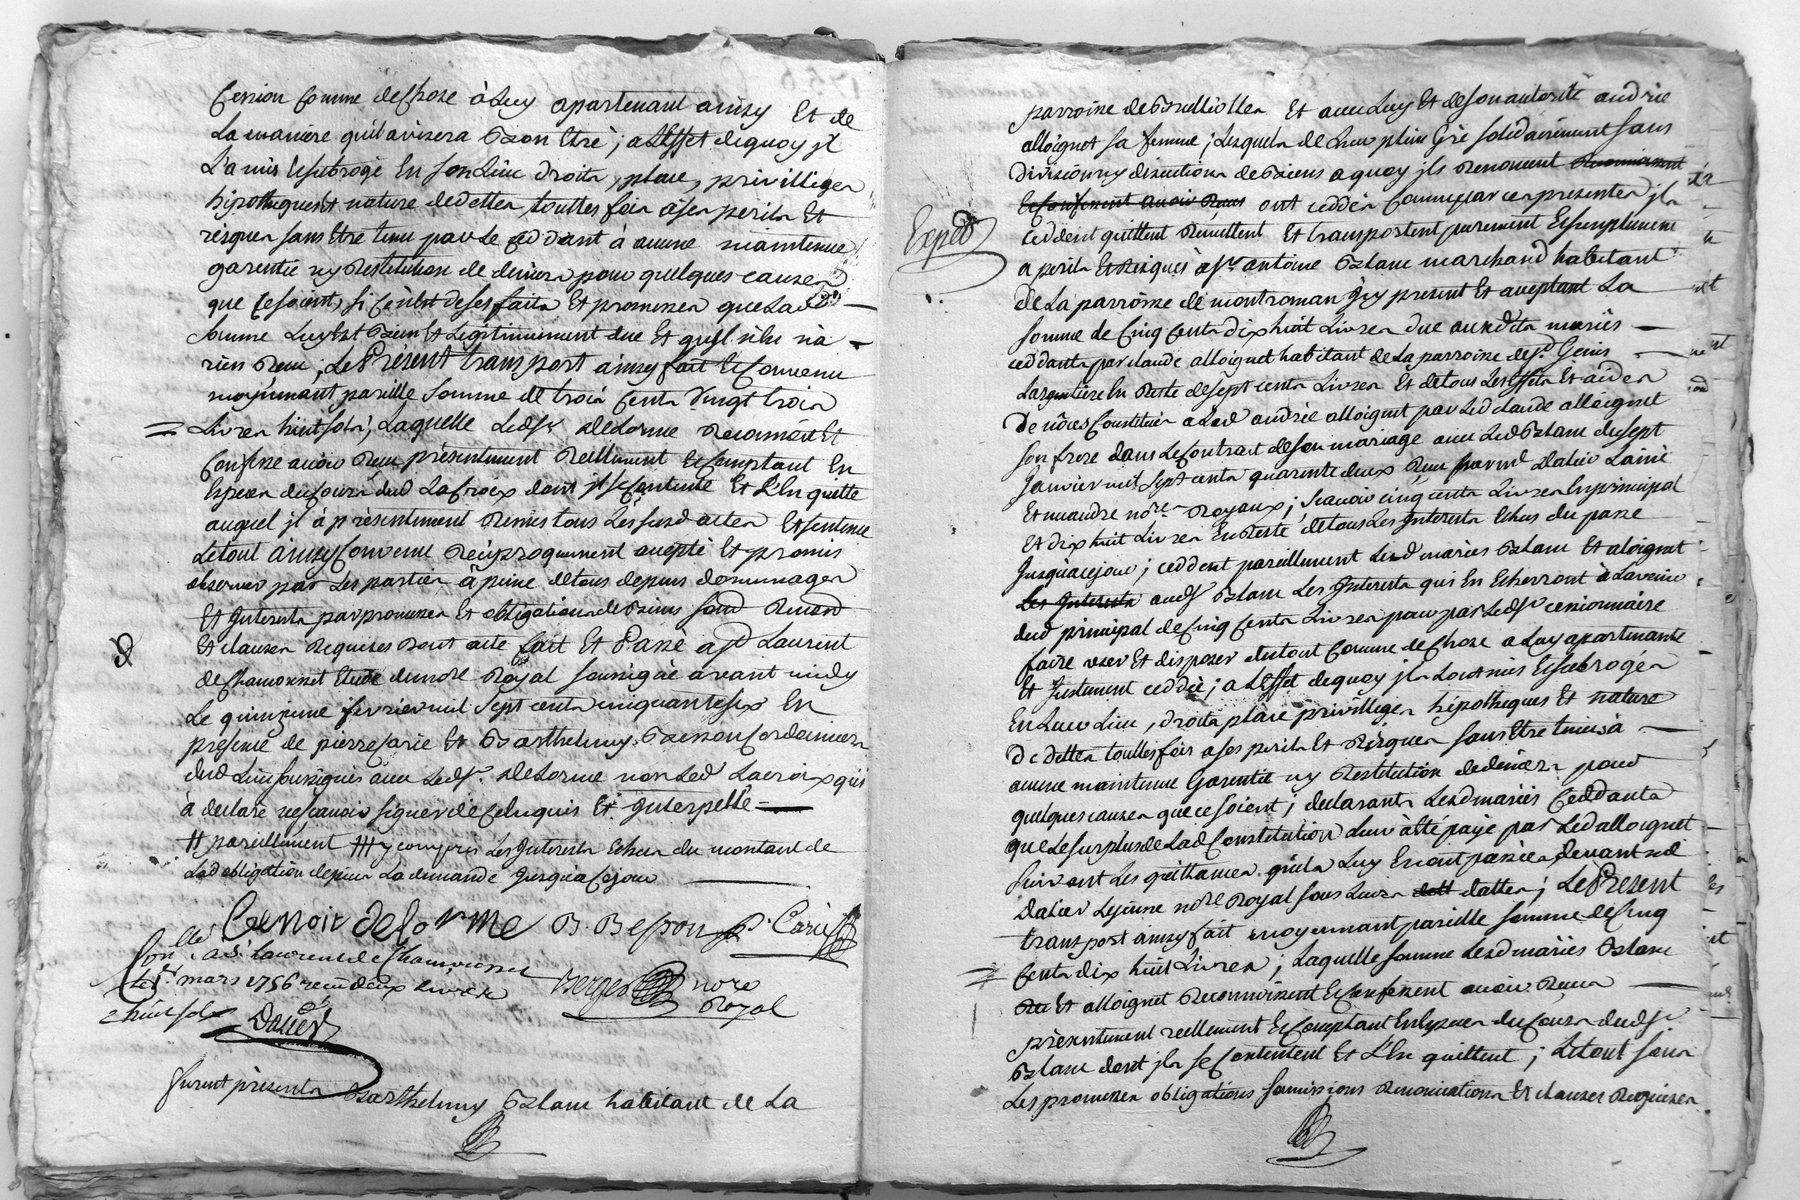 Cession Comme de Chose à Luy apartenant ainsy Et de
La maniere quil avisera bon Etre ; a LEffet dequoy jl
L'a mis Et subrogé En son Lieu droits, place, privilliges
hipotheques Et nature de dettes touttes fois a ses perils Et
risques sans Etre tenu par Le ceddant à aucune maintenue
garentie ny Restitution de deniers pour quelques causes
que ce soient, si ce n'Est de ses faits Et promesses que Lad
somme Luy Est bien Et Legitimement due Et quil n'En n'a
rien Reçu ; Le Present transport ainsy fait Et Convenu
moyennant pareille Somme de trois Cents Vingt trois
Livres huit sols, Laquelle Led sr Delorme Reconnoit Et
Confesse avoir Reçu présentement Réellement Et Comptant En
Especes du Cours dud Lacroix dont jl se Contente Et L'En quitte
auquel jl à présentement Remis tous Les susd actes Et sentence
Le tout ainsy Convenu Réciproquement accepté Et promis
observer par Les parties à peine de tous depens dommages
Et Interests par promesses Et obligations de biens soumd Renond
Et clauses Requises dont acte fait Et Passé a St Laurent
de Chamousset Etude du nore Royal soussigné avant midy
Le quinzieme fevrier mil sept cents cinquante six En
presence de pierre Carie Et Barthelemy Besson Cordonniers
dud Lieu soussignés avec Led sr. Delorme non Led Lacroix qui
à declaré ne sçavoir signer de ce Enquis Et Interpellé
# pareillement ## y compris Les Interests Echus du montant de
Lad obligation depuis La demande jusqua ce jour
Benoit delorme B. Besson P. Carie
Conllé a St Laurent de Chamousset
Le 1er mars 1756 reçu deux livres
huit sols
Dalier
Berger nore
Royal
Furent présents Barthelemy Blanc habitant de La
Expéd
parroisse de Brulliolles Et avec Luy Et de son autorité andrée
alloignet sa femme ; Lesquels de Leur plein Gré solidairement sans
division ny discution de biens a quoy jls Renoncent Reconnoissent
Et Confessent avoir Reçu ont ceddés Comme par ces presentes jls
Ceddent quittent Remettent Et transportent purement Et simplement
a perils Et Risques à sr antoine Blanc marchand habitant
de La parroisse de montroman jcy present Et acceptant La
somme de Cinq Cents dix huit Livres due auxdits mariés
ceddants par claude alloignet habitant de La parroisse de St. Genis
Largentiere En Reste de sept cents Livres Et de tous Les Effets Et aides
De nôces Constitués a Lad andrée alloignet par Led claude alloignet
son frere dans Le Contrat de son mariage avec Led Blanc du sept
Janvier mil sept cents quarente deux Reçu par me Dalier L'ainé
Et muandre nores Royaux ; sçavoir cinq cents Livres En principal
Et dix huit Livres En Reste de tous Les Interests Echus du passé
Jusqu'a ce jour ; ceddent pareillement Lesd mariés Blanc Et aloignet
Les Interests aud sr Blanc Les Interests qui En Echerront à L'avenir
dud principal de Cinq Cents Livres pour par Led sr cessionnaire
faire user Et disposer du tout Comme de Chose a Luy apartenante
Et Justement ceddée ; a LEffet de quoy jls L'ont mis Et subrogés
En Leur Lieu, droits place privilliges hipotheques Et nature
De dettes touttes fois a ses perils Et Risques sans Etre tenus à
aucune maintenue Garentie ny Restitution de deniers pour
quelques causes que ce soient ; declarants Lesd mariés Ceddants
que Le surplus de Lad Constitution Leur à Eté payé par Led alloignet
suivant Les quittances qu'ils Luy En ont passées devant me
Dalier Lejeune nore Royal sous Leurs datt dattes ; Le Present
transport ainsy fait moyennant pareille somme de Cinq
Cents dix huit Livres ; Laquelle somme Lesd mariés Blanc
Et alloignet Reconnoissent Et Confessent avoir Reçu
présentement réellement Et Comptant En Especes du Cours dud sr
Blanc dont jls se Contentent Et L'En quittent ; Le tout sous
Les promesses obligations soumissions Renonciations Et clauses Requises